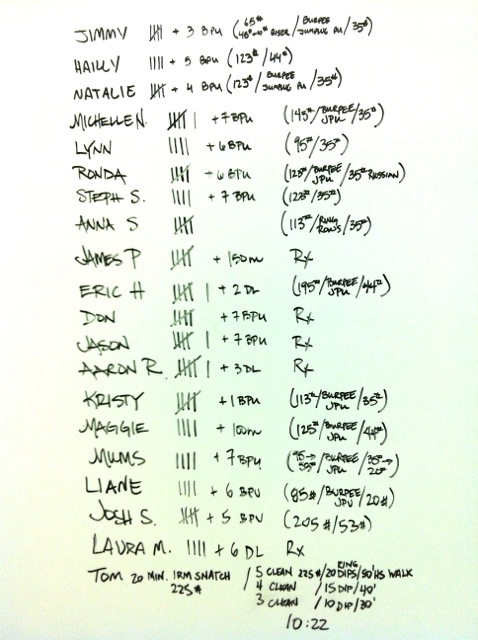 JIMMY 5 + 3 BPU (65# 45#-10" RISER / BURPEE JUMPING PU / 35#)
HAILLY 4 + 5 BPU (123# / 44#)
NATALIE 5 + 4 BPU (123# / BURPEE JUMPING PU / 35#)
MICHELLE N. 5 1 + 7 BPU (145# / BURPEE JPU / 35#)
LYNN 4 + 6 BPU (95# / 35#)
RONDA 5 + 6 BPU (123# / BURPEE JPU / 35# RUSSIAN)
STEPH S. 4 + 7 BPU (123# / 35#)
ANNA S 5 (113# / RING ROWS / 35#)
JAMES P 5 + 150m Rx
ERIC H 5 1 + 2 DL (195# / BURPEE JPU / 44#)
DON 5 + 7 BPU Rx
JASON 5 1 + 7 BPU Rx
AARON R. 5 1 + 3 DL Rx
KRISTY 5 + 1 BPU (113# / BURPEE JPU / 35#)
MAGGIE 4 + 100m (125# / BURPEE JPU / 44#)
MUMS 4 + 7 BPU (95 → / BURPEE JPU / 35# → 20#)
LIANE 4 + 6 BPU (85# / BURPEE JPU / 20#)
JOSH S. 5 + 5 BPU (205# / 53#)
LAURA M. 4 + 6 DL Rx
TOM 20 MIN. 1RM SNATCH 225# / 5 CLEAN 225# / 20 RING DIPS / 50' HS WALK
4 CLEAN / 15 DIP / 40'
3 CLEAN / 10 DIP / 30'
10:22